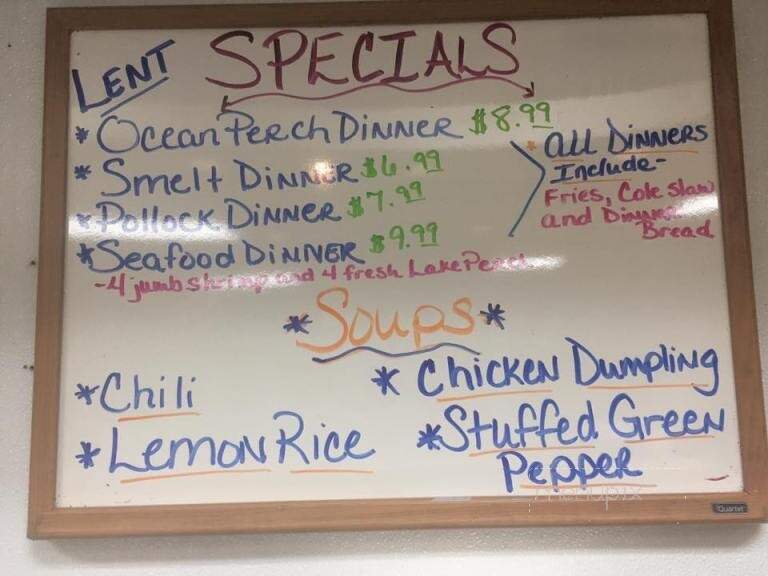 LENT SPECIALS
* Ocean Perch Dinner $8.99
* Smelt Dinner $6.99
* Pollock Dinner $7.99
* Seafood Dinner $9.99
-4 jumb shrimp and 4 fresh Lake Perch
* All Dinners
Include-
Fries, Cole Slaw
and Dinner
Bread
* Soups *
* Chili
* Lemon Rice
* Chicken Dumpling
* Stuffed Green
Pepper
menupix
Quartet